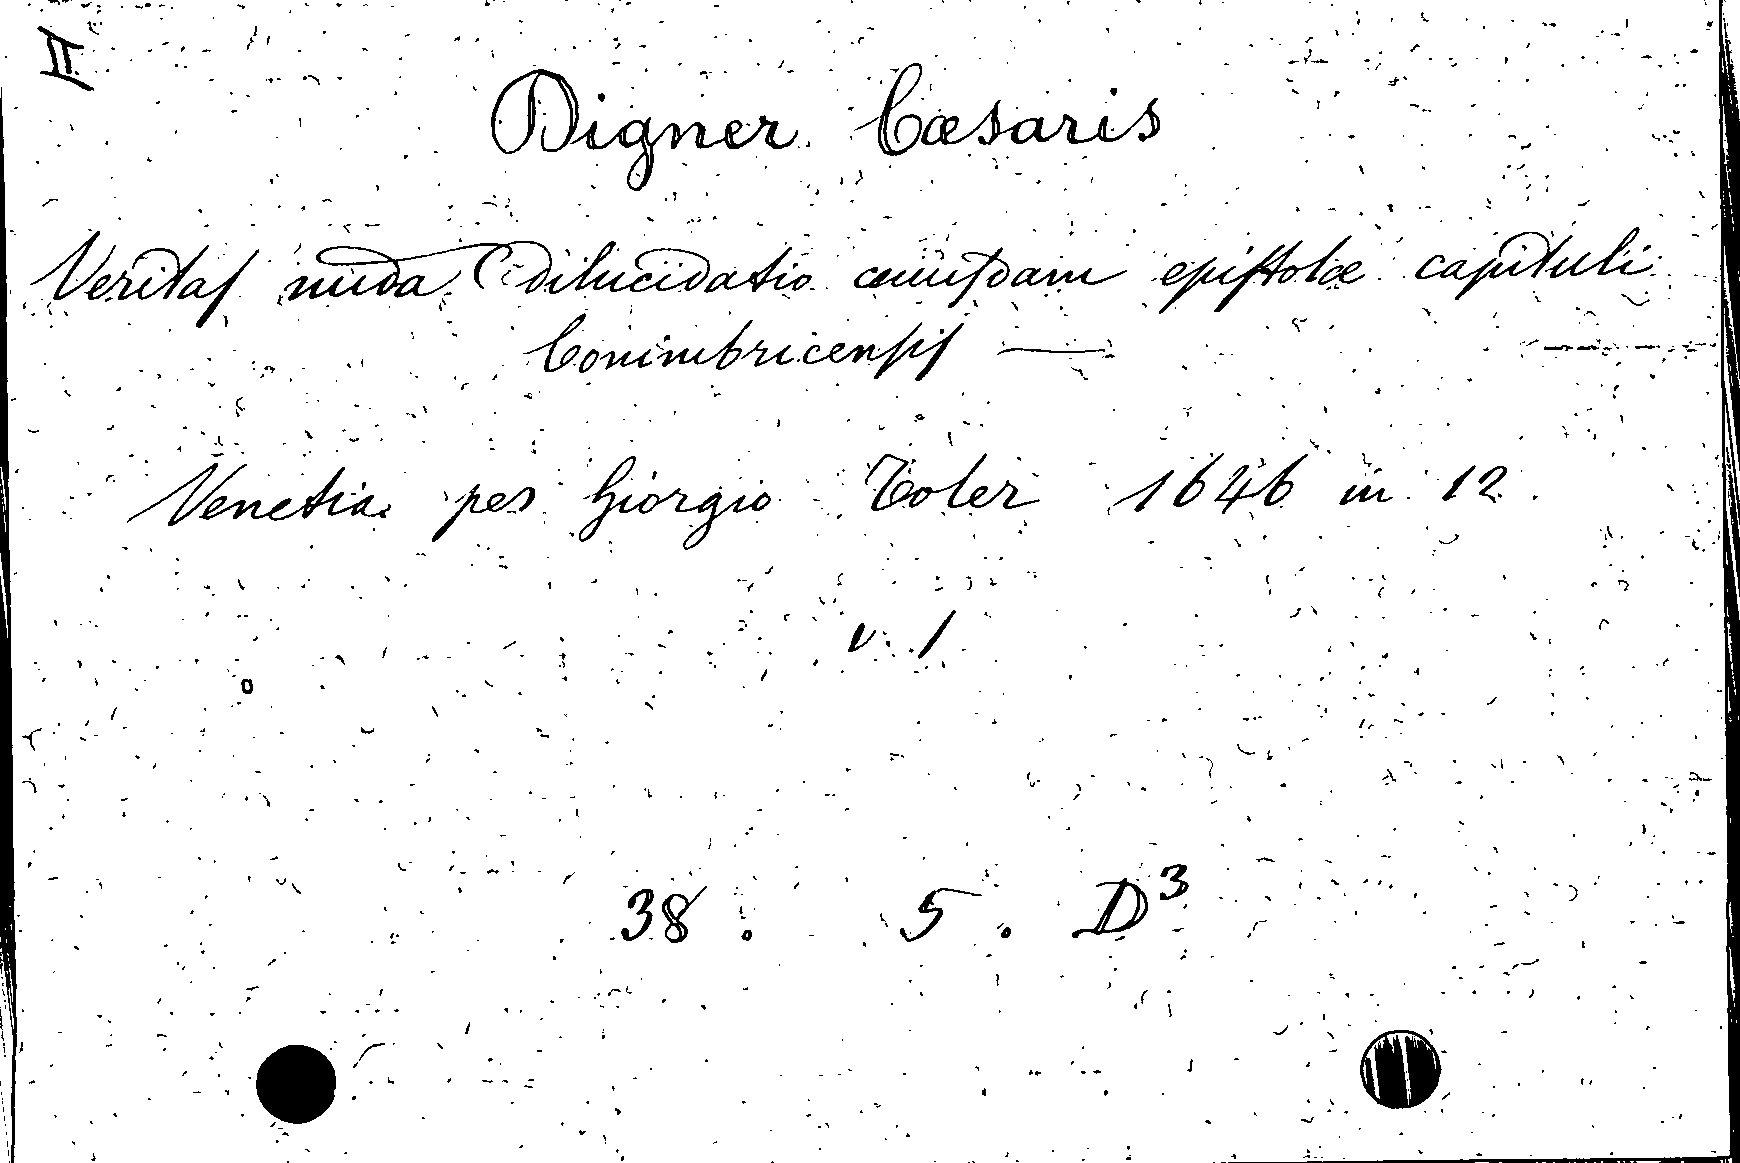 II
Digner Cæsaris
Veritas nuda dilucidatio cuiusdam epistolæ capituli
Conimbricensis —
Venetia per Giorgio Toler 1646 in 12.
v. 1
38. 5. D³